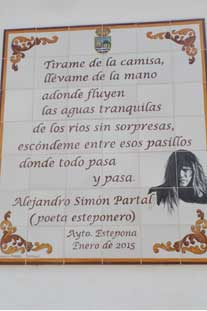 Tírame de la camisa,
llévame de la mano
adonde fluyen
las aguas tranquilas
de los rios sin sorpresas,
escóndeme entre esos pasillos
donde todo pasa
y pasa
Alejandro Simón Partal
(poeta esteponero)
Ayto. Estepona
Enero de 2015